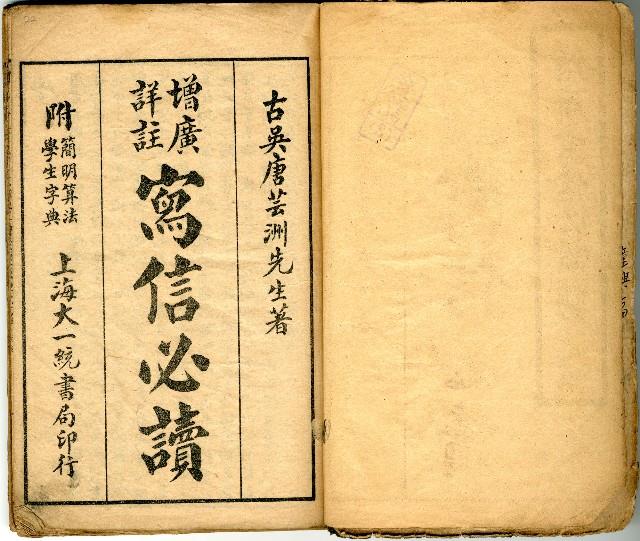 古吳唐芸洲先生著
增廣
詳註
寫信必讀
附
簡明算法
學生字典
上海大一統書局印行
22